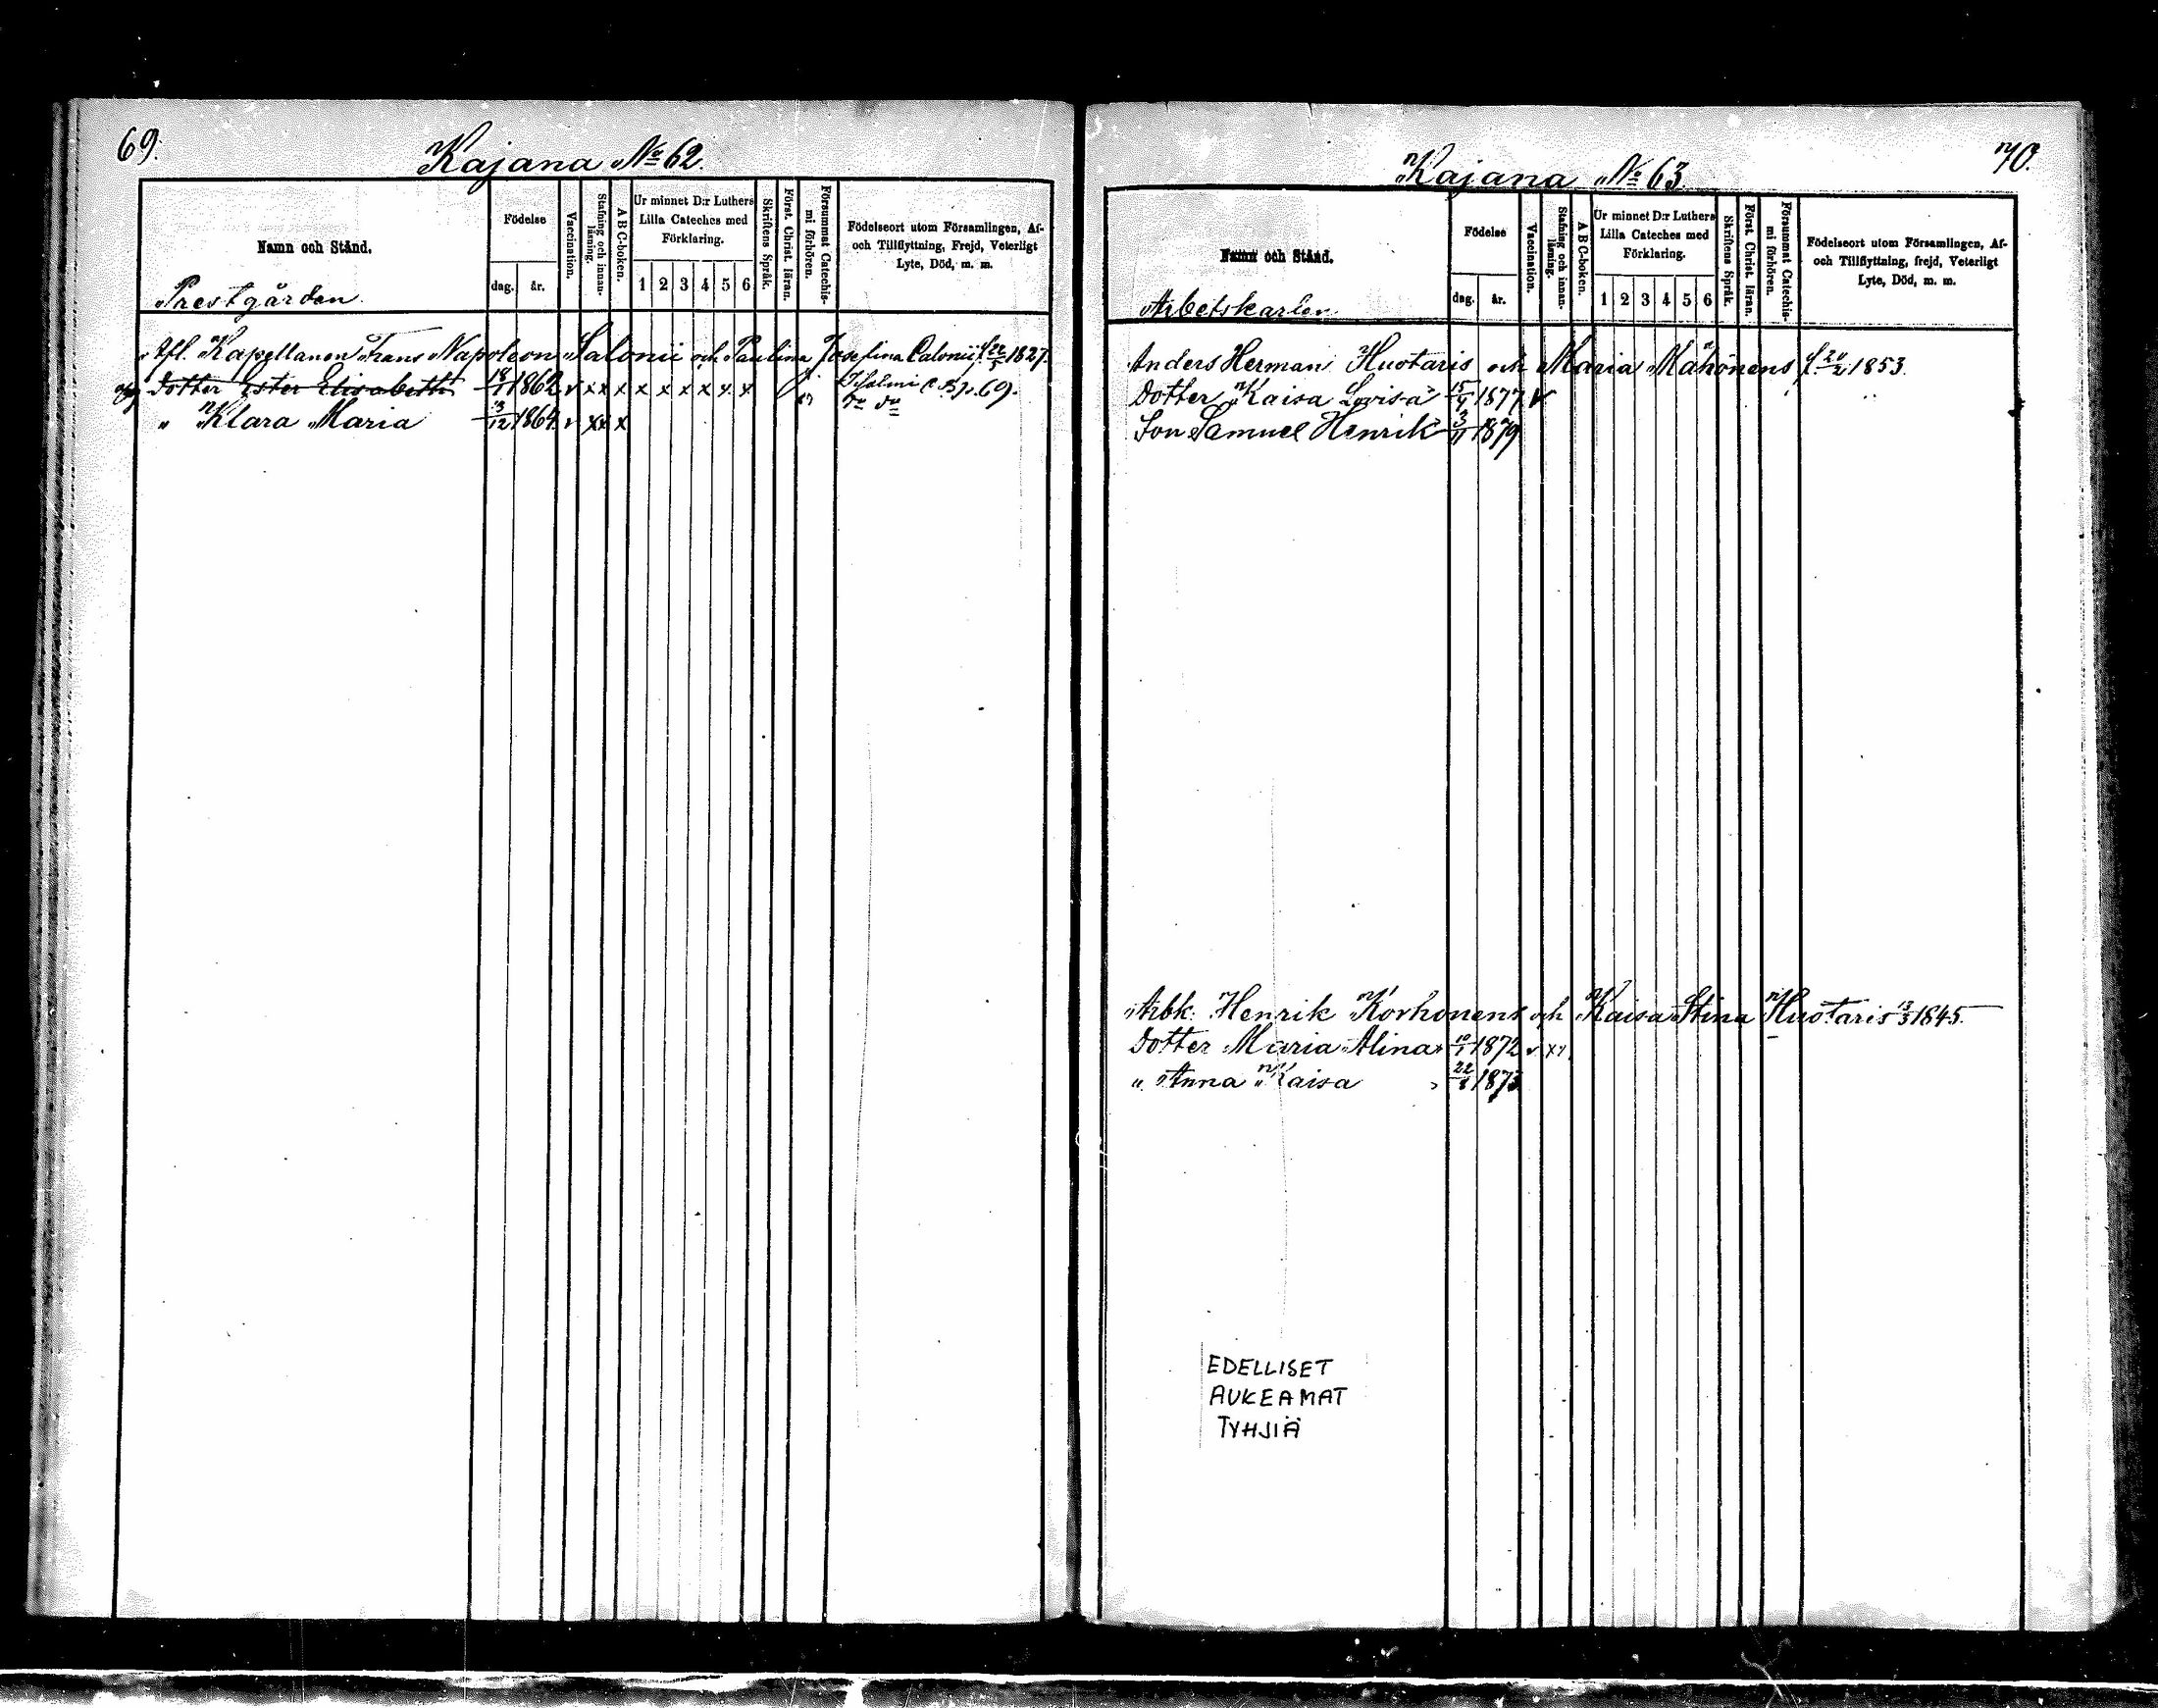 69.
Kajana No 62.
Namn och Stånd.
Prestgården
Födelse
dag. år.
Vaccination.
Stafning och innanläsning.
A B C-boken.
Ur minnet D:r Luthers
Lilla Cateches med
Förklaring.
1 2 3 4 5 6
Skriftens Språk.
Först. Christ. läran.
Försummat Catechismi förhören.
Födelseort utom Församlingen, Af-
och Tillflyttning, Frejd, Veterligt
Lyte, Död, m. m.
Afl. Kapellanen Frans Napoleon Salonii och Paulina Josefina Calonii f. 1827.
Dotter Ester Elisabeth 18/1 1862 v xx x x x x x x x 69.
" Klara Maria 13/12 1864 v xx x
70.
Kajana No 63
Namn och Stånd.
Arbetskarlen
Födelse
dag. år.
Vaccination.
Stafning och innanläsning.
A B C-boken.
Ur minnet D:r Luthers
Lilla Cateches med
Förklaring.
1 2 3 4 5 6
Skriftens Språk.
Först. Christ. läran.
Försummat Catechismi förhören.
Födelseort utom Församlingen, Af-
och Tillflyttning, frejd, Veterligt
Lyte, Död, m. m.
Anders Herman Huotaris och Maria Mähönens f. 20/2 1853.
Dotter Kaisa Lovisa 1877 v
Son Samuel Henrik 3/11 1879
Arbk. Henrik Korhonens och Kaisa Stina Huotaris 13/3 1845.
Dotter Maria Alina 10/1 1872 v xx
" Anna Kaisa 1875
EDELLISET
AUKEAMAT
TYHJIÄ